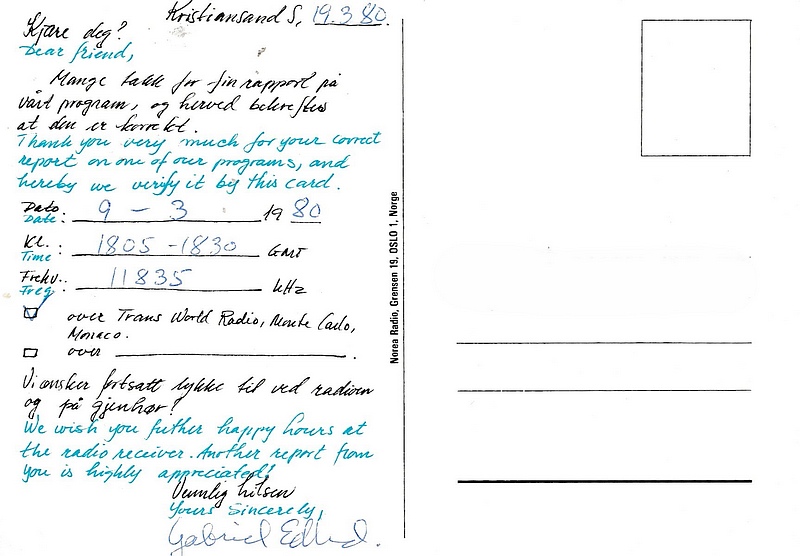 Kristiansand S, 19.3 80.
Kjære deg?
Dear friend,
Mange takk for fin rapport på
vårt program, og herved bekreftes
at den er korrekt.
Thank you very much for your correct
report on one of our programs, and
hereby we verify it by this card.
Dato
Date: 9 - 3 19 80
Kl.:
Time 1805 - 1830 GMT
Frekv.:
Freq. 11835 kHz
over Trans World Radio, Monte Carlo,
Monaco.
over .
Vi ønsker fortsatt lykke til ved radioen
og på gjenhør!
We wish you futher happy hours at
the radio receiver. Another report from
you is highly appreciated!
Vennlig hilsen
Yours Sincerely,
Gabriel
Norea Radio, Grensen 19, OSLO 1, Norge